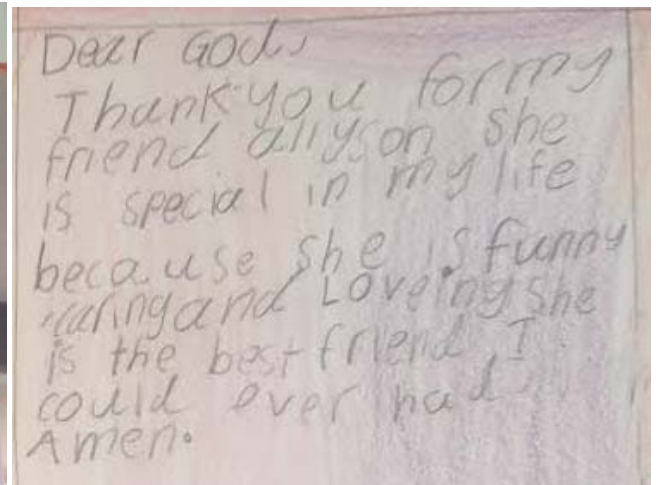 Dear God,
Thank you for my
friend allyson she
is special in my life
because she is funny
caring and Loveing she
is the best friend I
could ever had
Amen.